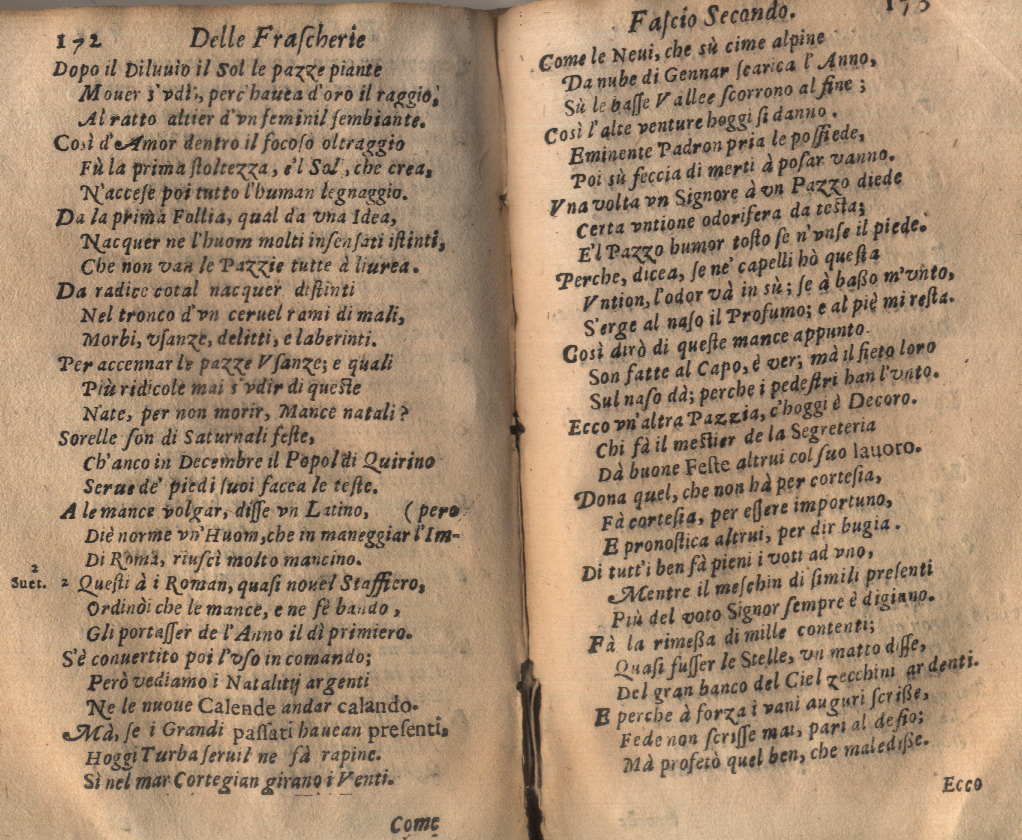 172 Delle Fraſcherie
Dopo il Diluuio il Sol le pazze piante
Mouer s'vdì, perc'hauea d'oro il raggio,
Al ratto altier d'vn feminil ſembiante.
Così d'Amor dentro il focoſo oltraggio
Fù la prima ſtoltezza, e'l Sol, che crea,
N'acceſe poi tutto l'human legnaggio.
Da la prima Follia, qual da vna Idea,
Nacquer ne l'huom molti inſenſati iſtinti,
Che non van le Pazzie tutte à liurea.
Da radice cotal nacquer diſtinti
Nel tronco d'vn ceruel rami di mali,
Morbi, vſanze, delitti, e laberinti.
Per accennar le pazze Vſanze; e quali
Più ridicole mai s'vdir di queſte
Nate, per non morir, Mance natali?
Sorelle ſon di Saturnali feſte,
Ch'anco in Decembre il Popol di Quirino
Serue de' piedi ſuoi facea le teſte.
A le mance volgar, diſſe vn Latino, (pero
Diè norme vn'Huom, che in maneggiar l'Im-
Di Roma, riuſcì molto mancino.
2
Suet. 2 Queſti à i Roman, quaſi nouel Staffiero,
Ordinòi che le mance, e ne fè bando,
Gli portaſſer de l'Anno il dì primiero.
S'è conuertito poi l'vſo in comando;
Però vediamo i Natalitij argenti
Ne le nuoue Calende andar calando.
Mà, ſe i Grandi paſſati hauean preſenti,
Hoggi Turba ſeruil ne fà rapine.
Sì nel mar Cortegian girano i Venti.
Come
Faſcio Secondo. 173
Come le Neui, che sù cime alpine
Da nube di Gennar ſcarica l'Anno,
Sù le baſſe Vallee ſcorrono al fine;
Così l'alte venture hoggi ſi danno.
Eminente Padron pria le poſſiede,
Poi sù feccia di merti à poſar vanno.
Vna volta vn Signore à vn Pazzo diede
Certa vntione odorifera da teſta;
E'l Pazzo humor toſto ſe n'vnſe il piede.
Perche, dicea, ſe ne' capelli hò queſta
Vntion, l'odor và in sù; ſe à baßo m'vnto,
S'erge al naſo il Profumo; e al piè mi reſta.
Così dirò di queſte mance appunto.
Son fatte al Capo, è ver; mà il fieto loro
Sul naſo dà; perche i pedeſtri han l'vnto.
Ecco vn'altra Pazzia, c'hoggi è Decoro.
Chi fà il meſtier de la Segreteria
Dà buone Feſte altrui col ſuo lauoro.
Dona quel, che non hà per corteſia,
Fà corteſia, per eſſere importuno,
E pronoſtica altrui, per dir bugia.
Di tutt'i ben fà pieni i voti ad vno,
Mentre il meſchin di ſimili preſenti
Più del voto Signor ſempre è digiuno.
Fà la rimeßa di mille contenti;
Quaſi fuſſer le Stelle, vn matto diſſe,
Del gran banco del Ciel zecchini ardenti.
E perche à forza i vani auguri ſcriße,
Fede non ſcriſſe mai, pari al deſio;
Mà profetò quel ben, che malediße.
Ecco